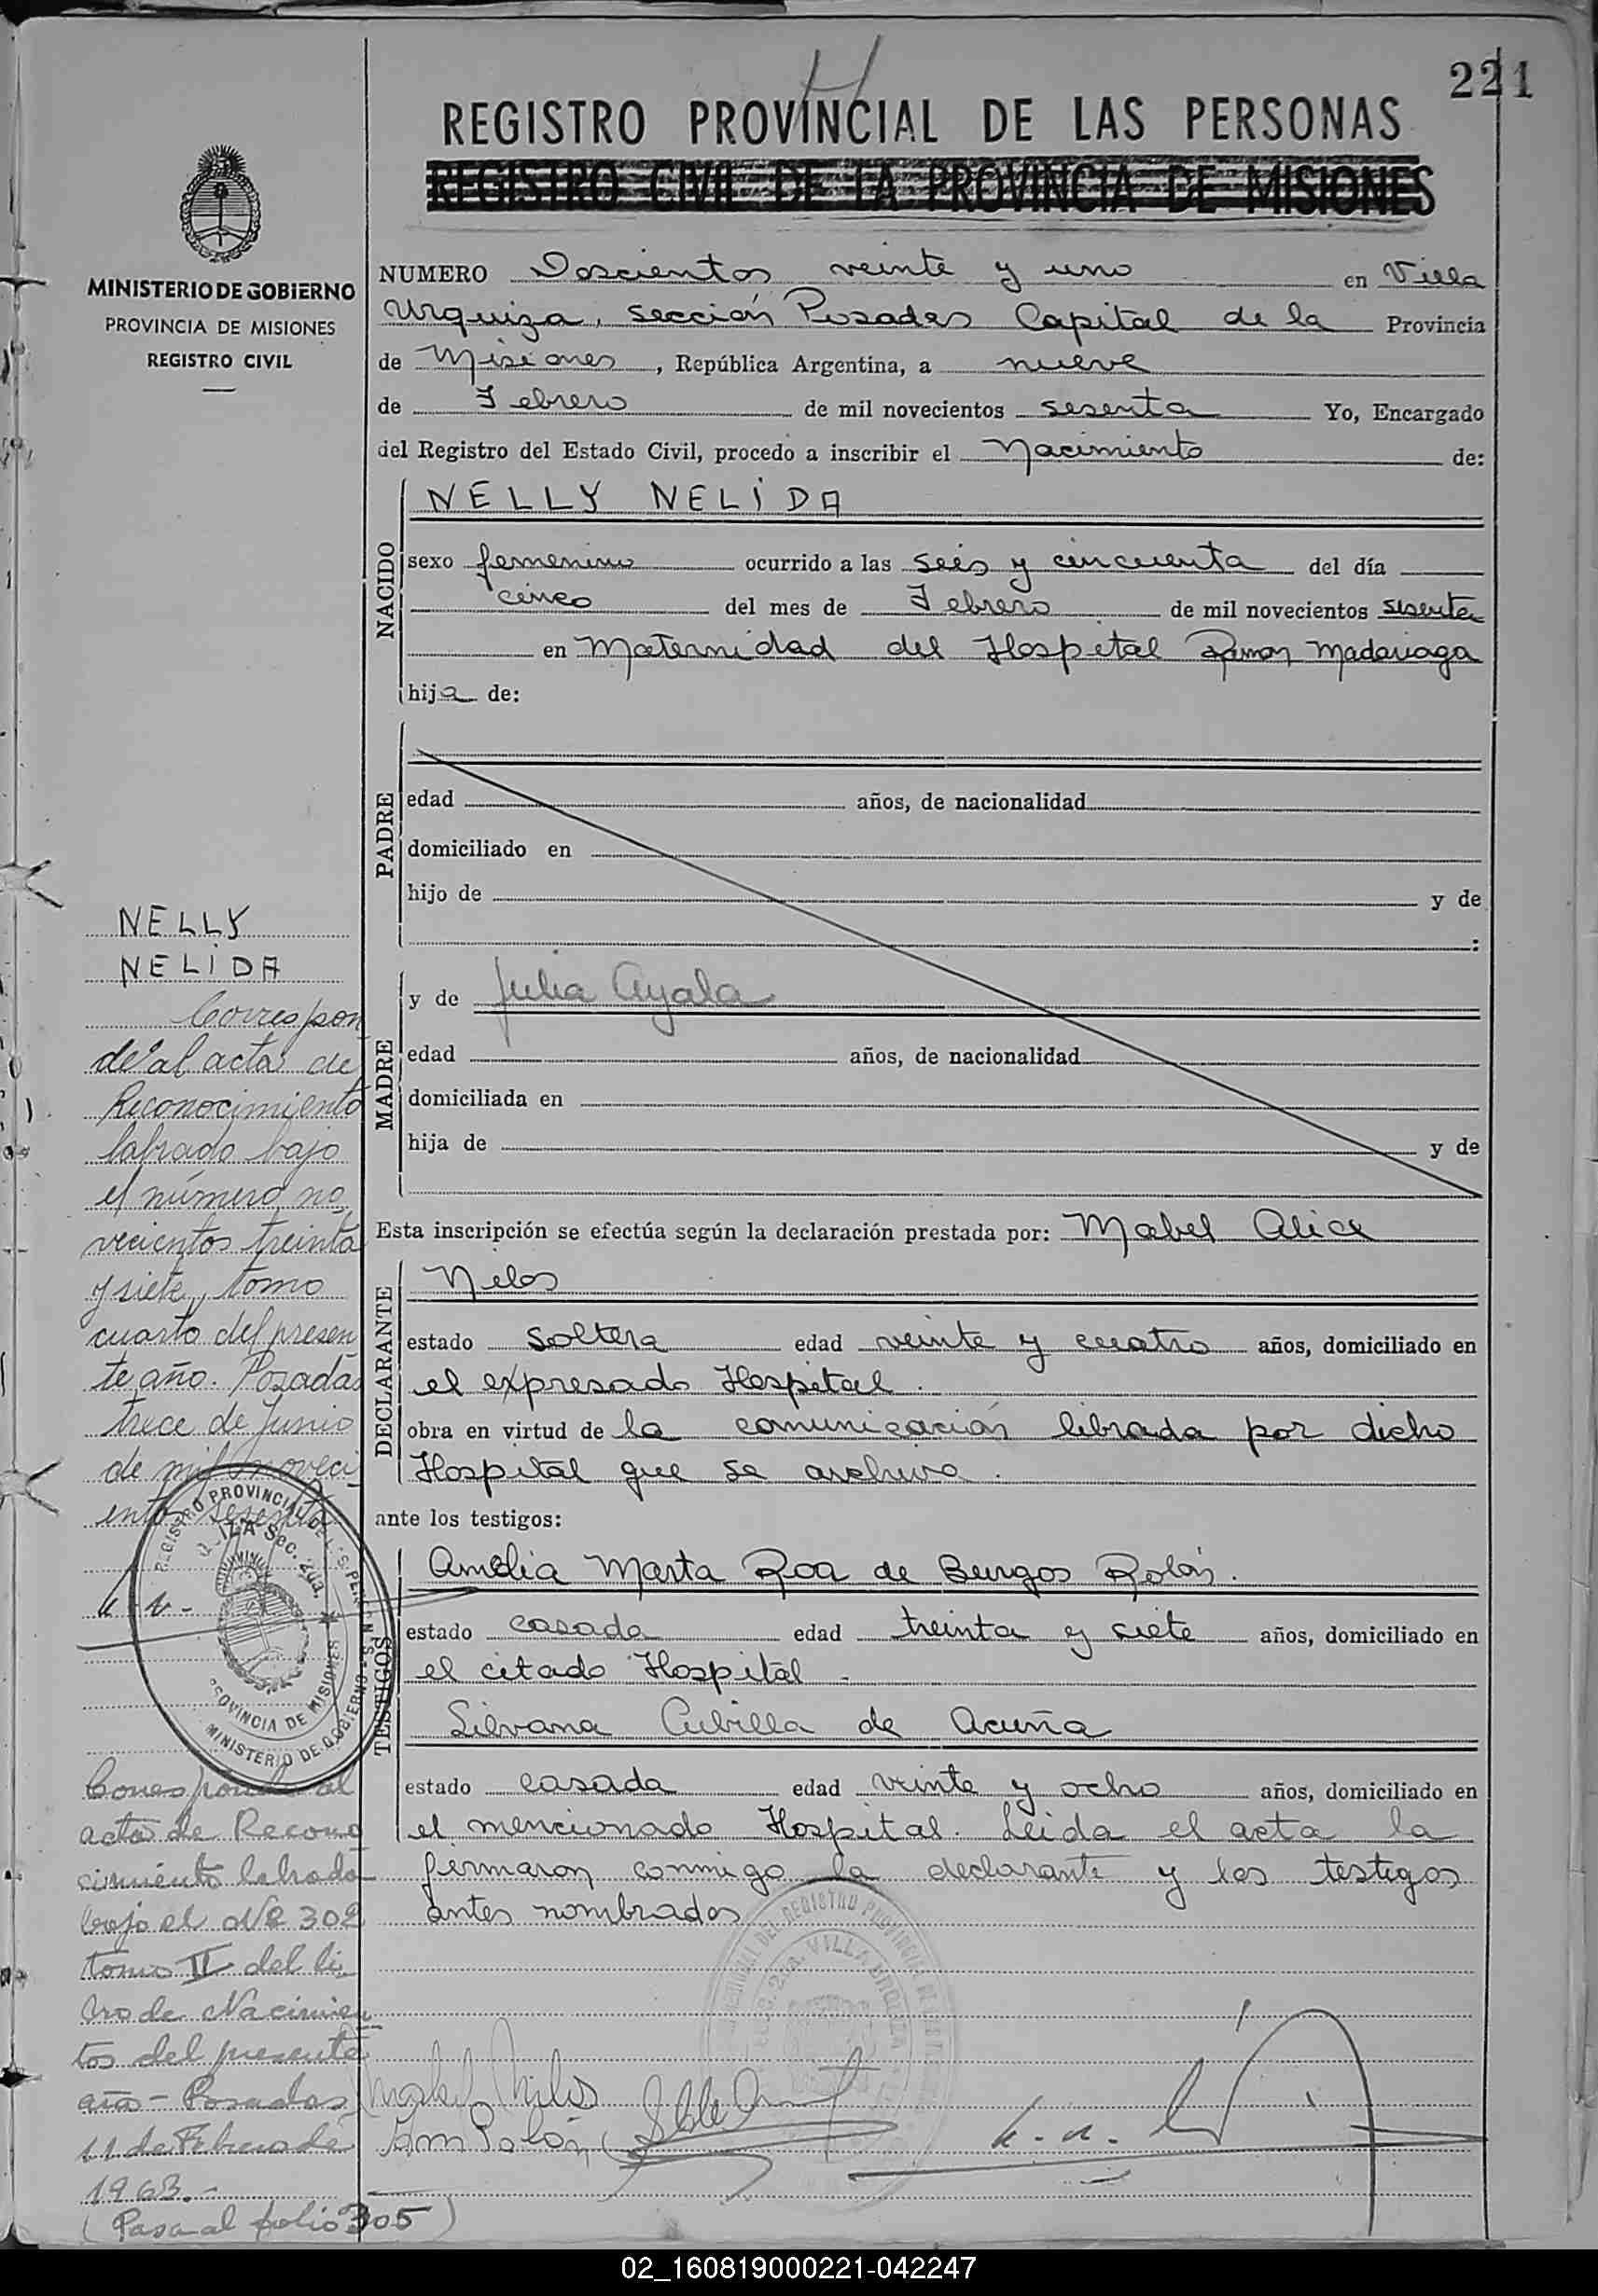 221
REGISTRO PROVINCIAL DE LAS PERSONAS
REGISTRO CIVIL DE LA PROVINCIA DE MISIONES
MINISTERIO DE GOBIERNO
PROVINCIA DE MISIONES
REGISTRO CIVIL
NUMERO Doscientos veinte y uno en Villa
Urquiza, sección Posadas Capital de la Provincia
de Misiones, República Argentina, a nueve
de Febrero de mil novecientos sesenta Yo, Encargado
del Registro del Estado Civil, procedo a inscribir el Nacimiento de:
NACIDO
NELLY NELIDA
sexo femenino ocurrido a las seis y cincuenta del día
cinco del mes de Febrero de mil novecientos sesenta
en Maternidad del Hospital Ramon Madariaga
hija de:
PADRE
edad años, de nacionalidad
domiciliado en
hijo de y de
:
MADRE
y de Julia Ayala
edad años, de nacionalidad
domiciliada en
hija de y de
Esta inscripción se efectúa según la declaración prestada por: Mabel Alice
DECLARANTE
Nelos
estado soltera edad veinte y cuatro años, domiciliado en
el expresado Hospital.
obra en virtud de la comunicación librada por dicho
Hospital que se archiva.
ante los testigos:
TESTIGOS
Amelia Marta Roa de Burgos Rolón.
estado casada edad treinta y siete años, domiciliado en
el citado Hospital -
Silvana Cubilla de Acuña
estado casada edad veinte y ocho años, domiciliado en
el mencionado Hospital. Leida el acta la
firmaron conmigo la declarante y los testigos
antes nombrados
NELLY
NELIDA
Correspon
de al acta de
Reconocimiento
labrado bajo
el número no
vecientos treinta
y siete, tomo
cuarto del presen
te año. Posadas
trece de Junio
de mil noveci
entos sesenta
REGISTRO PROVINCIAL DE LAS PERSONAS
Sec. 2da.
PROVINCIA DE MISIONES
MINISTERIO DE GOBIERNO
Corresponde al
acta de Recono
cimiento labrada
bajo el Nº 302
tomo II del li
bro de Nacimien
tos del presente
año - Posadas
11 de Febrero de
1963.-
(Pasa al folio 305)
02_160819000221-042247